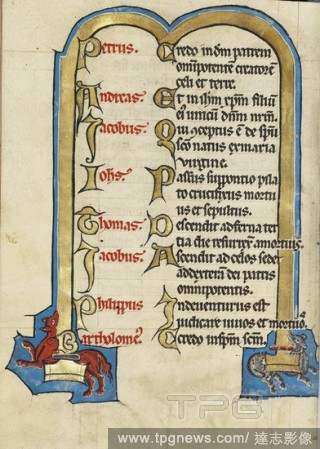 Petrus. Credo in dm̄ patrem
om̄ipotentē creatorē
celi et terre.
Andreas. Et in ih̄m xp̄m filiū
Jacobus. ei unicū dn̄m nr̄m.
Qui ↄceptus ē de sp̄u
Iohs. sc̄o natus ex maria
virgine.
Passus sub pontio pila
to crucifixus mortu
us et sepultus.
Thomas. Descendit ad ferna ter
tia die resurrex. a mortuis.
Jacobus. Ascendit ad celos sedet
ad dexterā dei patris
omnipotentis.
Philippus Inde venturus est
judicare vivos et mortuos.
Bartholome. Credo in sp̄m sc̄m.
TPG
www.tpgnews.com/ 達志影像